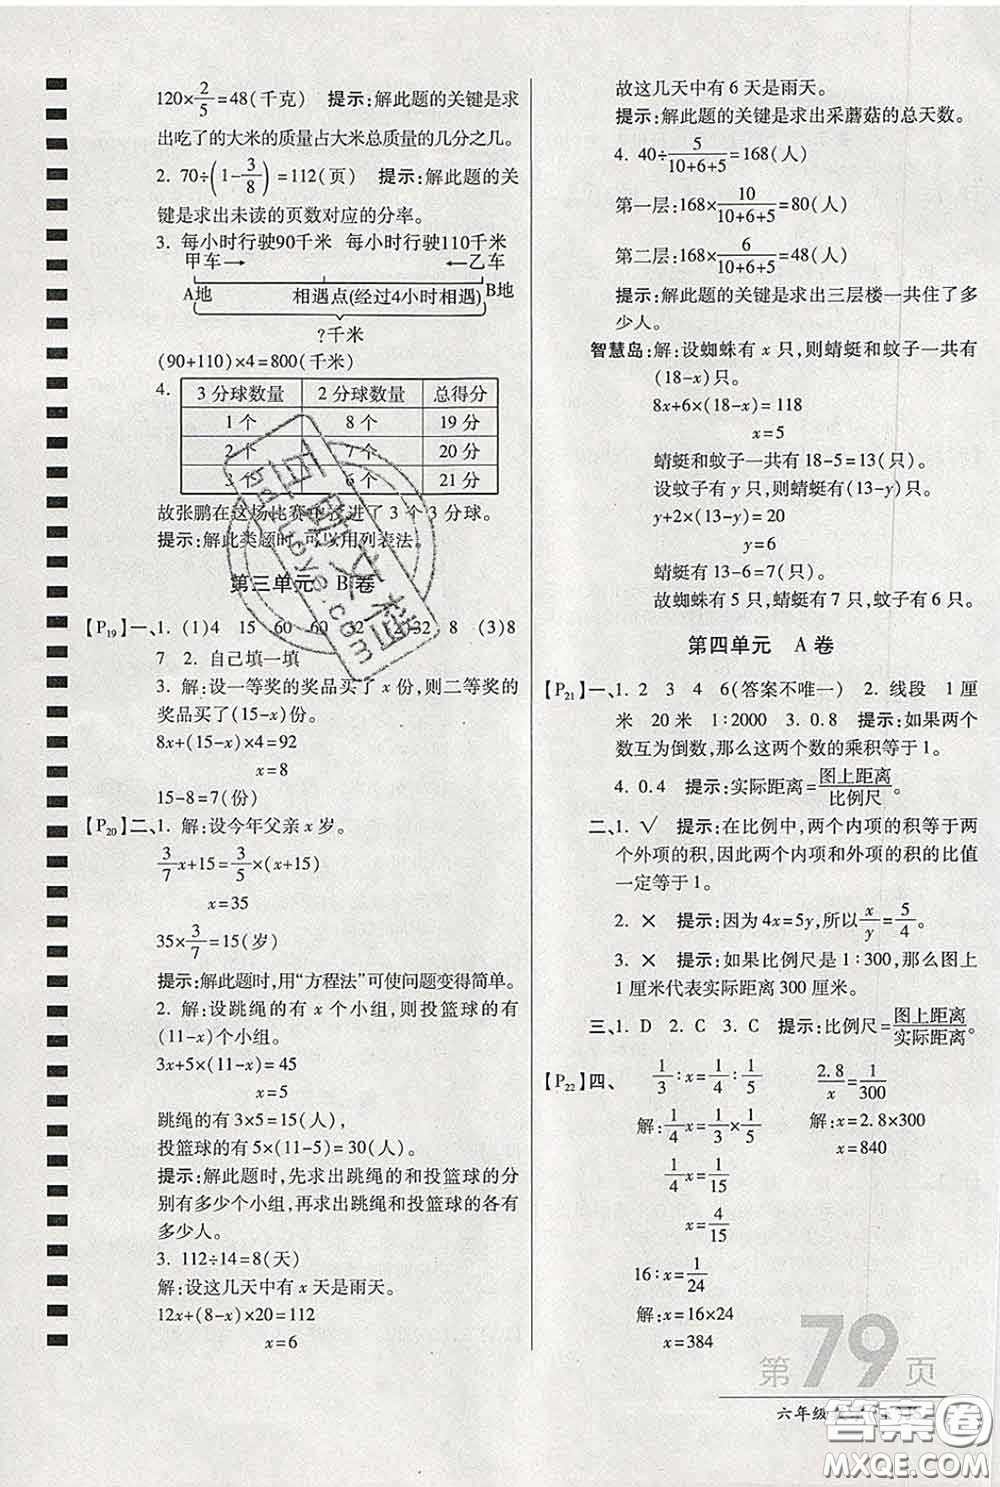 120×2/5=48(千克) 提示:解此题的关键是求
出吃了的大米的质量占大米总质量的几分之几。
2. 70÷(1-3/8)=112(页) 提示:解此题的关
键是求出未读的页数对应的分率。
3. 每小时行驶90千米 每小时行驶110千米
甲车 乙车
A地 相遇点(经过4小时相遇) B地
?千米
(90+110)×4=800(千米)
4. 3分球数量 2分球数量 总得分
1个 8个 19分
2个 7个 20分
3个 6个 21分
故张鹏在这场比赛中投进了3个3分球。
提示:解此类题时,可以用列表法。
第三单元 B卷
【P19】一、1. (1)4 15 60 60 32 32 8 (3)8
7 2. 自己填一填
3. 解:设一等奖的奖品买了x份,则二等奖的
奖品买了(15-x)份。
8x+(15-x)×4=92
x=8
15-8=7(份)
【P20】二、1. 解:设今年父亲x岁。
3/7x+15=3/5×(x+15)
x=35
35×3/7=15(岁)
提示:解此题时,用“方程法”可使问题变得简单。
2. 解:设跳绳的有x个小组,则投篮球的有
(11-x)个小组。
3x+5×(11-x)=45
x=5
跳绳的有3×5=15(人),
投篮球的有5×(11-5)=30(人)。
提示:解此题时,先求出跳绳的和投篮球的分
别有多少个小组,再求出跳绳和投篮球的各有
多少人。
3. 112÷14=8(天)
解:设这几天中有x天是雨天。
12x+(8-x)×20=112
x=6
故这几天中有6天是雨天。
提示:解此题的关键是求出采蘑菇的总天数。
4. 40÷5/(10+6+5)=168(人)
第一层:168×10/(10+6+5)=80(人)
第二层:168×6/(10+6+5)=48(人)
提示:解此题的关键是求出三层楼一共住了多
少人。
智慧岛:解:设蜘蛛有x只,则蜻蜓和蚊子一共有
(18-x)只。
8x+6×(18-x)=118
x=5
蜻蜓和蚊子一共有18-5=13(只)。
设蚊子有y只,则蜻蜓有(13-y)只。
y+2×(13-y)=20
y=6
蜻蜓有13-6=7(只)。
故蜘蛛有5只,蜻蜓有7只,蚊子有6只。
第四单元 A卷
【P21】一、1. 2 3 4 6(答案不唯一) 2. 线段 1厘
米 20米 1∶2000 3. 0.8 提示:如果两个
数互为倒数,那么这两个数的乘积等于1。
4. 0.4 提示:实际距离=图上距离/比例尺。
二、1. √ 提示:在比例中,两个内项的积等于两
个外项的积,因此两个内项和外项的积的比值
一定等于1。
2. × 提示:因为4x=5y,所以x/y=5/4。
3. × 提示:如果比例尺是1∶300,那么图上
1厘米代表实际距离300厘米。
三、1. D 2. C 3. C 提示:比例尺=图上距离/实际距离。
【P22】四、 1/3∶x=1/4∶1/5 2.8/x=1/300
解:1/4x=1/3×1/5 解:x=2.8×300
1/4x=1/15 x=840
x=4/15
16∶x=1/24
解:x=16×24
x=384
第79页
六年级
答案卷
MXQE.COM